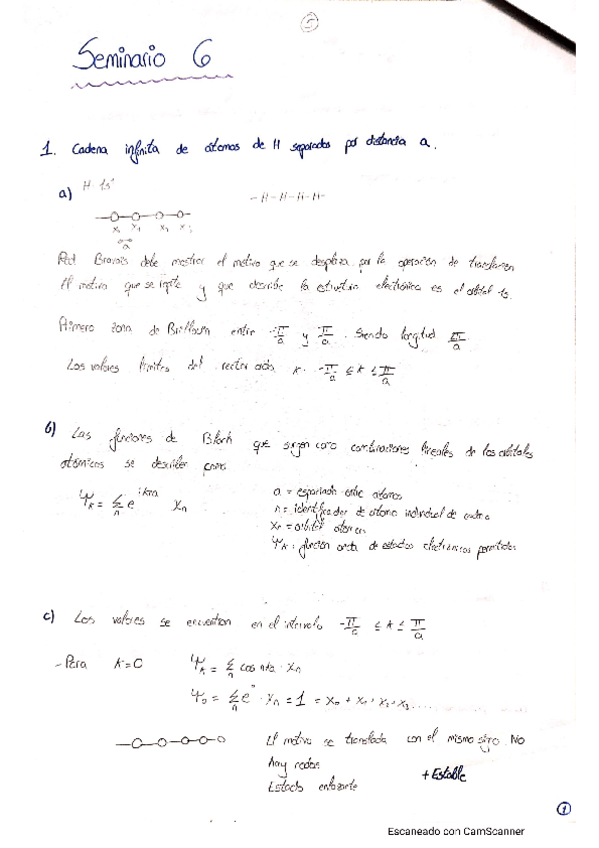 5
Seminario 6
1. Cadena infinita de átomos de H separados por distancia a.
a) H 1s¹
-H-H-H-H-
a
Red Bravais debe mostrar el motivo que se desplaza por la operación de
El motivo que se repite y que describe la estructura electrónica es el orbital 1s.
Primera zona de Brillouin entre -π/a y π/a. Siendo longitud 2π/a
Los valores límites del vector onda k. -π/a ≤ k ≤ π/a
b) Las funciones de Bloch que surgen como combinaciones lineales de los orbitales
atómicos se describen como
Ψk = Σn e^ikna Xn
a = espaciado entre átomos
n = identificador de átomo individual de
Xn = orbital atómico
Ψk: función onda de estados electrónicos permitidos
c) Los valores se encuentran en el intervalo -π/a ≤ k ≤ π/a
- Para k=0 Ψk = Σn cos nka · Xn
Ψ0 = Σn e⁰ · Xn = 1 = X0 + X1 + X2 + X3 ........
El motivo se translada con el mismo signo. No
hay nodos
+ Estable
Estado enlazante
1
Escaneado con CamScanner